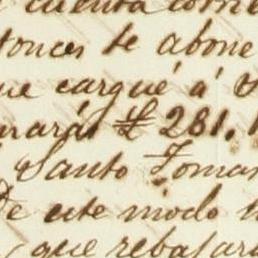 cuenta corrie
tonces se abone
ue cargué á V
marás £ 281.
Santo Tomas
De este modo
que rebajará